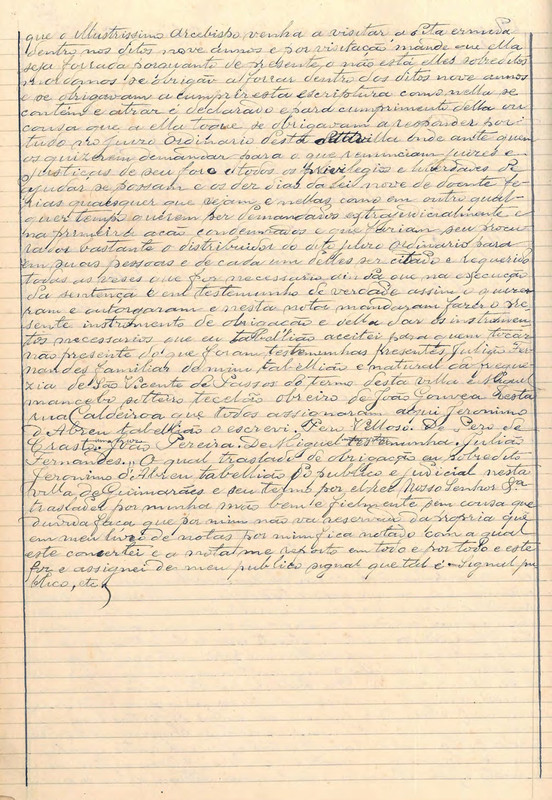 que o Illustrissimo Arcebisho, venha a visitar a dita ermida
dentro nos ditos nove annos e por visitação mande que ella
seja forrada porquanto de presente o não está elles sobreditos
mordomos se obrigão a forrar dentro dos ditos nove annos
e se obrigavam a cumprir esta escriptura como nella se
contem e atraz é declarado e para cumprimento della ou
causa que a ella toque se obrigavam a responder por
tudo no juizo Ordinario desta villa onde ante quem
os quizerem demandar para o que renunciam juizes e
justiças de seu foro e todos os privilegios e liberdades de
ajudar se possam e os dez dias da lei nove de doente fe
rias quaesquer que sejam e nellas como em outro qual
quer tempo querem ser demandados extrajudicialmente e
na primeira acão condemnados e que fariam seu procu
rador bastante o distribuidor do dito juizo Ordinario para
em suas pessoas e de cada um delles ser citado e requerido
todas as veses que for necessario ainda que na execução
da sentença e em testemunho de verdade assim o quizer
ram e outorgaram e nesta nota mandaram fazer o pre
sente instrumento de obrigação e della dar os instrumen
tos necessarios que eu tabellião aceitei para quem tocar
não presente do que foram testemunhas presentes Julião Fer
nandes familiar de mim tabellião e natural da fregue
zia de São Vicente de Passos do termo desta villa e Miguel
mancebo solteiro tecelão obreiro de João Gonvea desta
rua Caldeiroa que todos assignaram aqui Jeronimo
d'Abreu tabellião o escrevi. Pero Velloso. De Pero de
Crasto. João Pereira. De Miguel testemunha. Julião
Fernandes. O qual traslado de obrigação eu sobredito
Jeronimo d'Abreu tabellião publico e judicial nesta
villa de Guimarães e seu termo por el-rei Nosso Senhor
trasladei por minha mão bem e fielmente sem causa que
duvida faça que por mim não vai reservais da propria que
em meu livro de notas por mim fica notado com a qual
este concertei e a notal me reporto em todo e por todo e este
fiz e assignei de meu publico signal que tal é. Signal pu
blico, etc